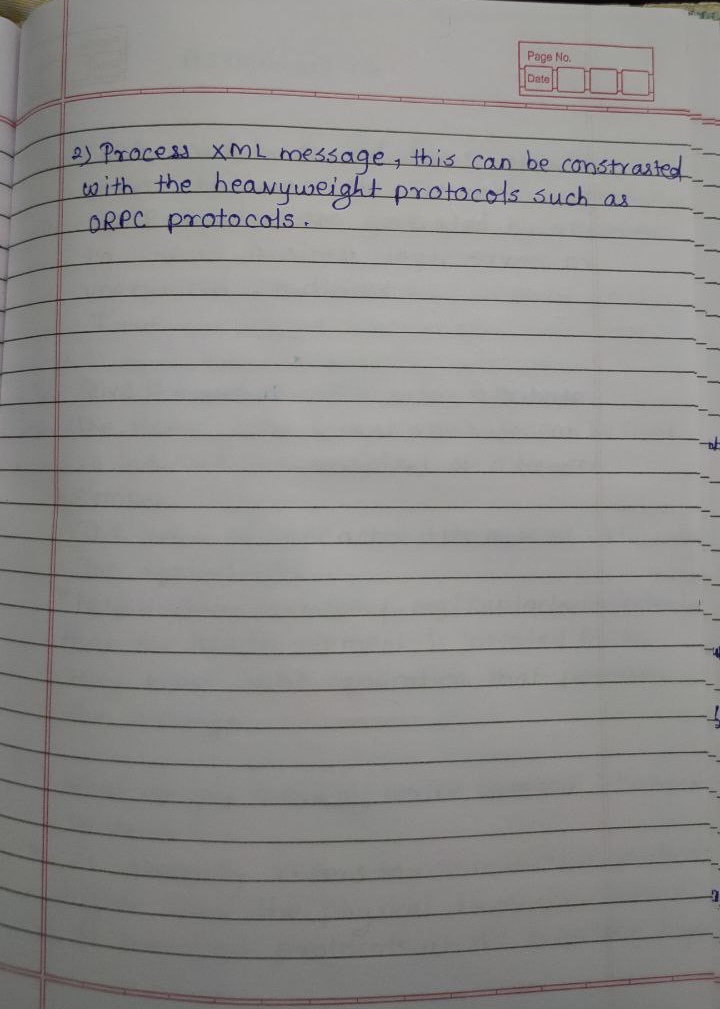 Page No.
Date
2) Process XML message, this can be constrasted
with the heavyweight protocols such as
ORPC protocols.